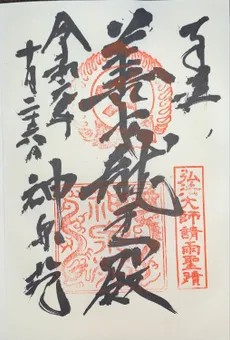 奉拝
弘法大師請雨聖蹟
善女龍王殿
令和 年
十月
神泉苑